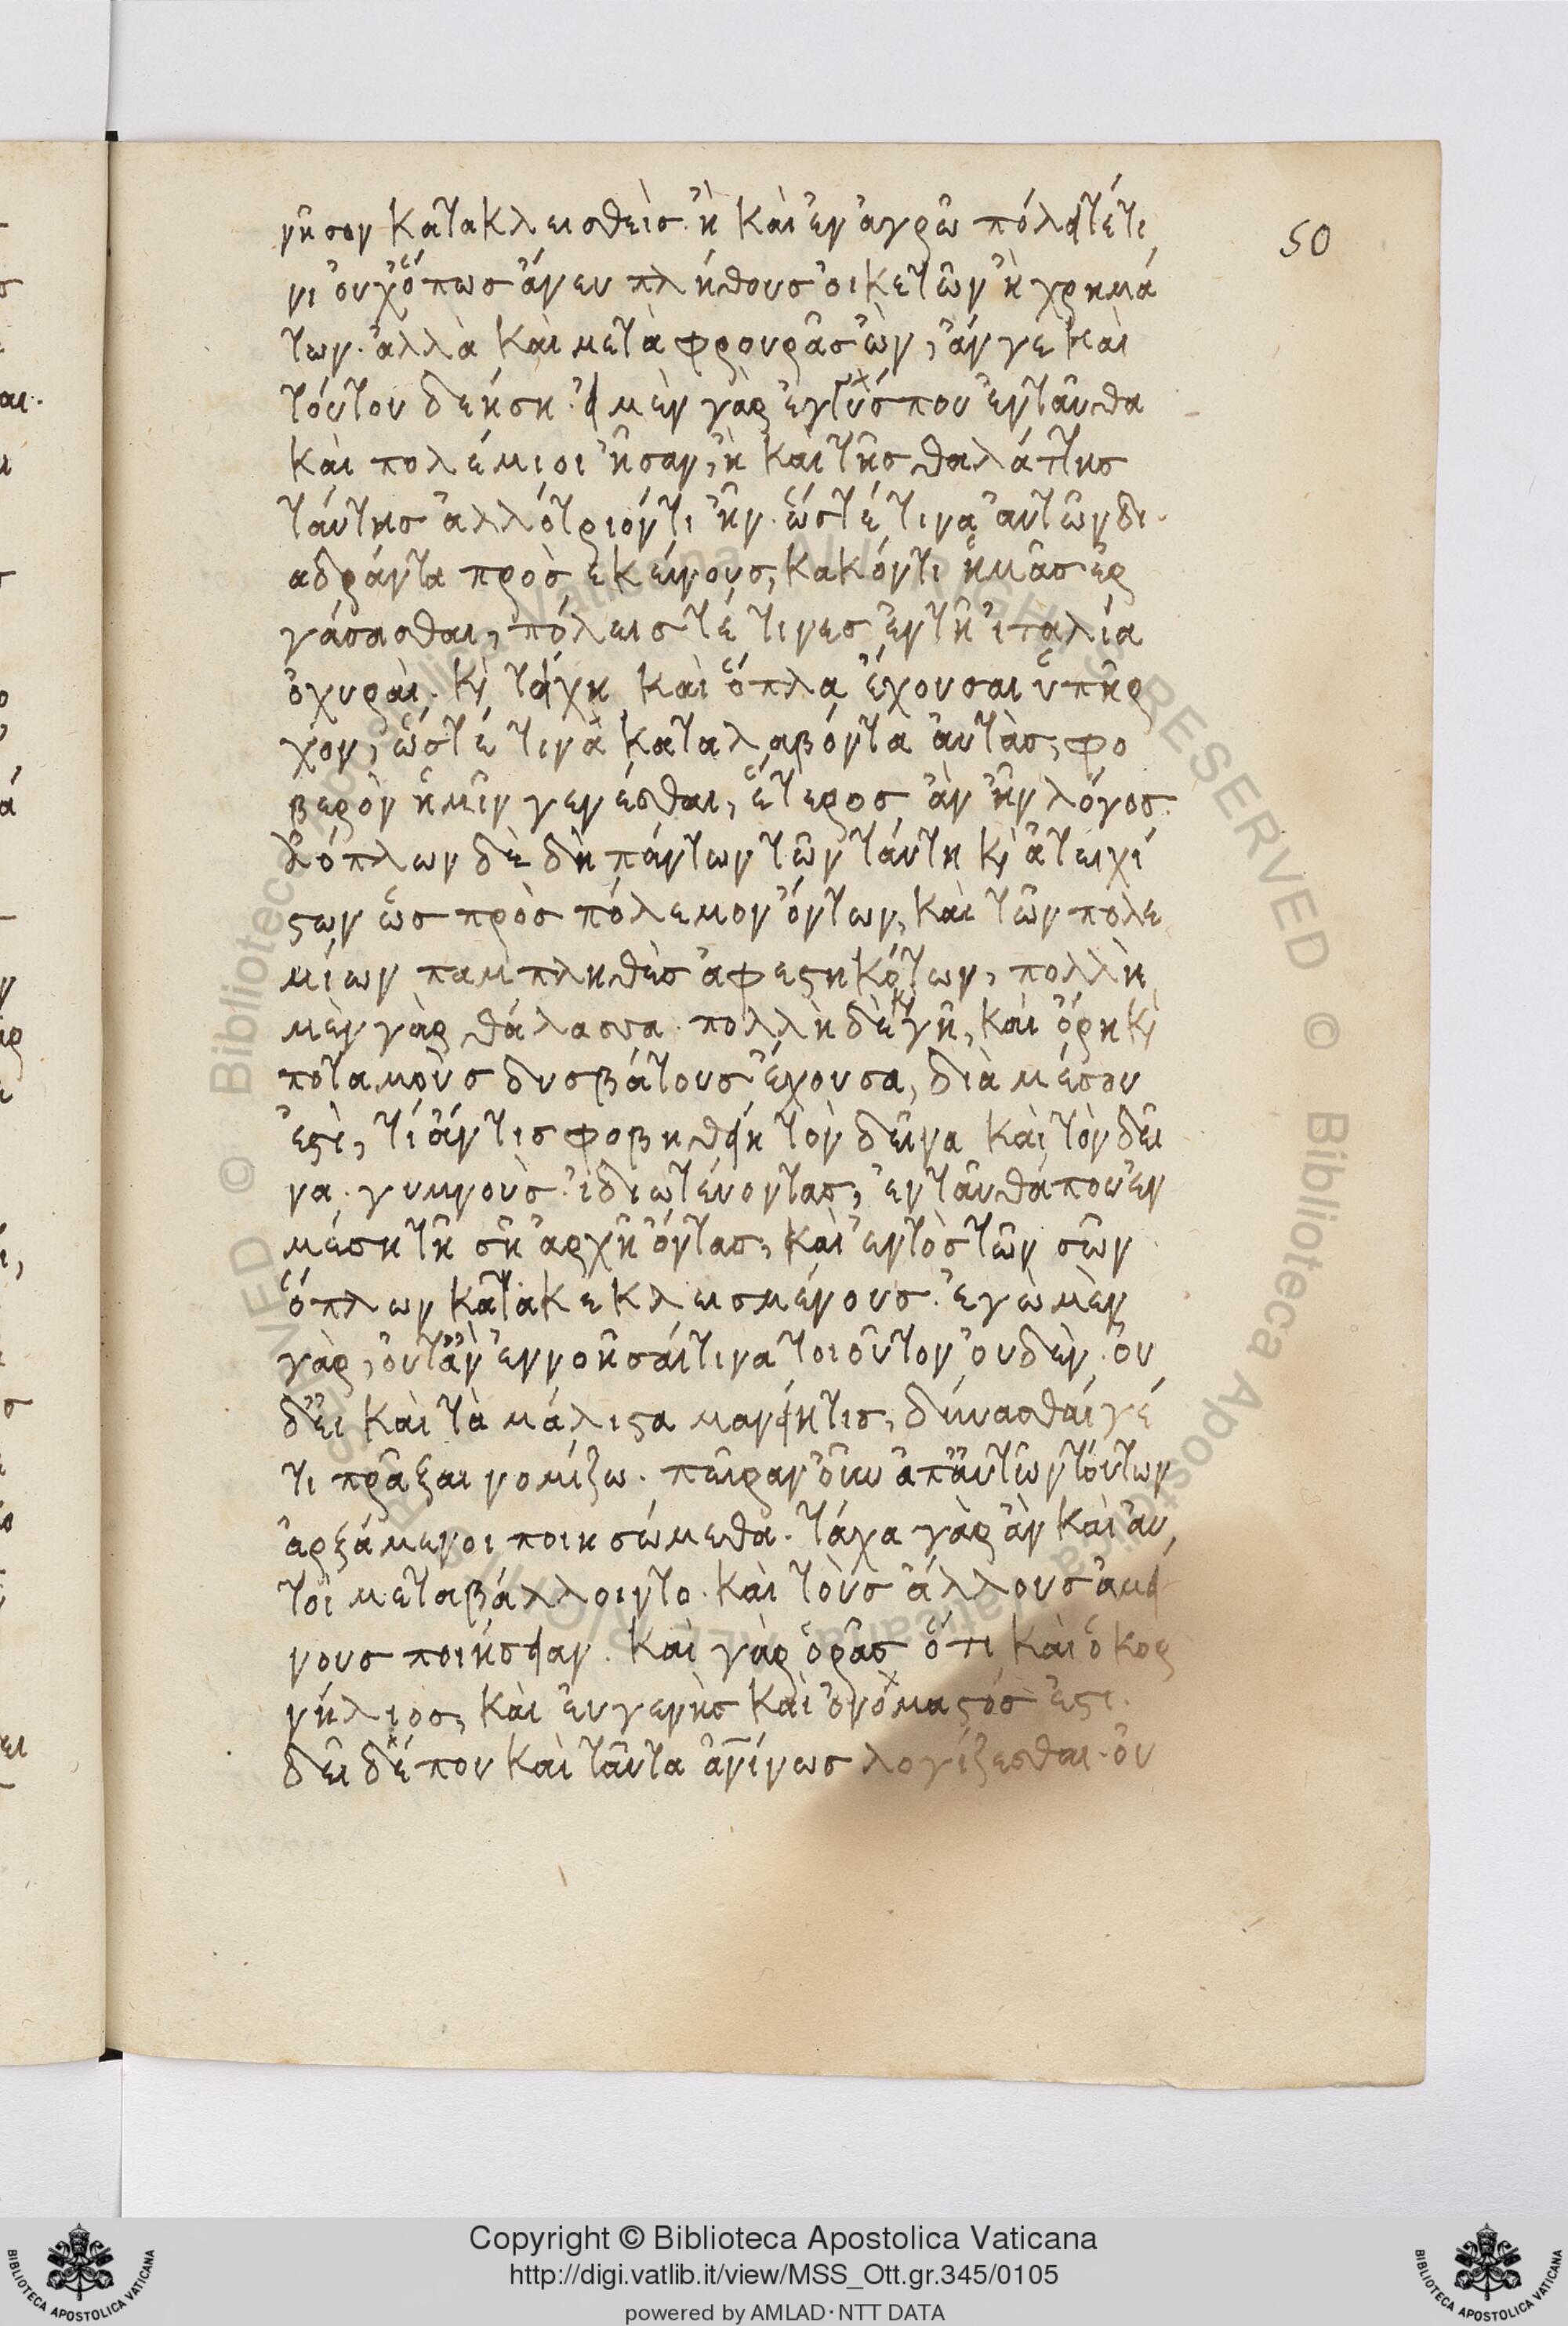 νῆσον κατακλεισθεὶς. ἢ καὶ ἐν ἀγρῷ πόλει τέ τι
νι οὐχ ὅπως ἄνευ πλήθους οἰκετῶν ἢ χρημά
των. ἀλλὰ καὶ μετὰ φρουρᾶς ὢν, ἄν γε καὶ
τούτου δεήση. εἰ μὲν γὰρ ἐγγύς που ἐνταῦθα
καὶ πολέμιοι ἦσαν, ἢ καὶ τῆς θαλάττης
ταύτης ἀλλότριόν τι ἦν. ὥστέ τινα αὐτῶν δι
αδράντα πρὸς ἐκείνους, κακόν τι ἡμᾶς ἐρ
γάσασθαι, πόλεις τέ τινες ἐν τῆ ἰταλία
ὀχυραὶ. κὶ τείχη καὶ ὅπλα ἔχουσαι ὑπῆρ
χον, ὥστέ τινὰ καταλαβόντα αὐτὰς, φο
βερὸν ἡμῖν γενέσθαι, ἕτερος ἂν ἦν λόγος.
ἀόπλων δὲ δὴ πάντων τῶν ταύτη κὶ ἀτειχί
στων ὡς πρὸς πόλεμον ὄντων, καὶ τῶν πολε
μίων παμπληθὲς ἀφεστηκότων, πολλὴ
μὲν γὰρ θάλασσα. πολλὴ δὲ κὶ γῆ, καὶ ὄρη κὶ
ποταμοὺς δυσβάτους ἔχουσα, διὰ μέσου
ἐστὶ, τί ἄν τις φοβηθείη τὸν δεῖνα καὶ τὸν δεῖ
να. γυμνοὺς. ἰδιωτεύοντας, ἐνταῦθά που ἐν
μέση τῆ σῆ ἀρχῆ ὄντας, καὶ ἐντὸς τῶν σῶν
ὅπλων κατακεκλεισμένους. ἐγὼ μὲν
γὰρ, οὔτ' ἂν ἐννοῆσαί τινα τοιοῦτον οὐδὲν. οὐ
δ' εἰ καὶ τὰ μάλιστα μανείη τις, δύνασθαί γέ
τι πρᾶξαι νομίζω. πεῖραν οὖν ἀπ' αὐτῶν τούτων
ἀρξάμενοι ποιησώμεθα. τάχα γὰρ ἂν καὶ αὐ
τοὶ μεταβάλλοιντο. καὶ τοὺς ἄλλους ἀμεί
νους ποιήσειαν. καὶ γὰρ ὁρᾶς ὅτι καὶ ὁ κορ
νήλιος, καὶ εὐγενὴς καὶ ὀνομαστός ἐστι.
δεῖ δέ που καὶ ταῦτα λογίζεσθαι. οὐ
50
Copyright © Biblioteca Apostolica Vaticana
http://digi.vatlib.it/view/MSS_Ott.gr.345/0105
powered by AMLAD·NTT DATA